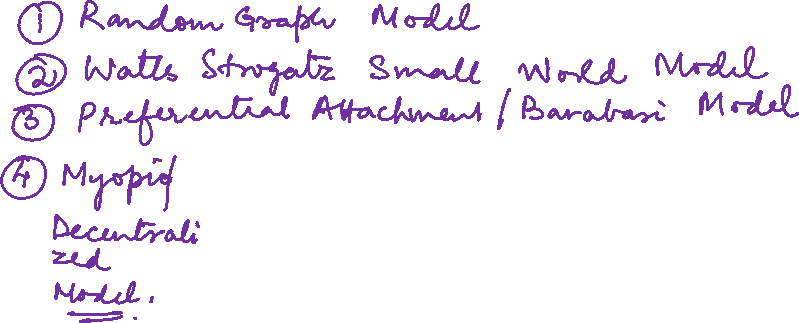 ① Random Graph Model
② Watts Strogatz Small World Model
③ Preferential Attachment / Barabasi Model
④ Myopic/
Decentrali
zed
Model.